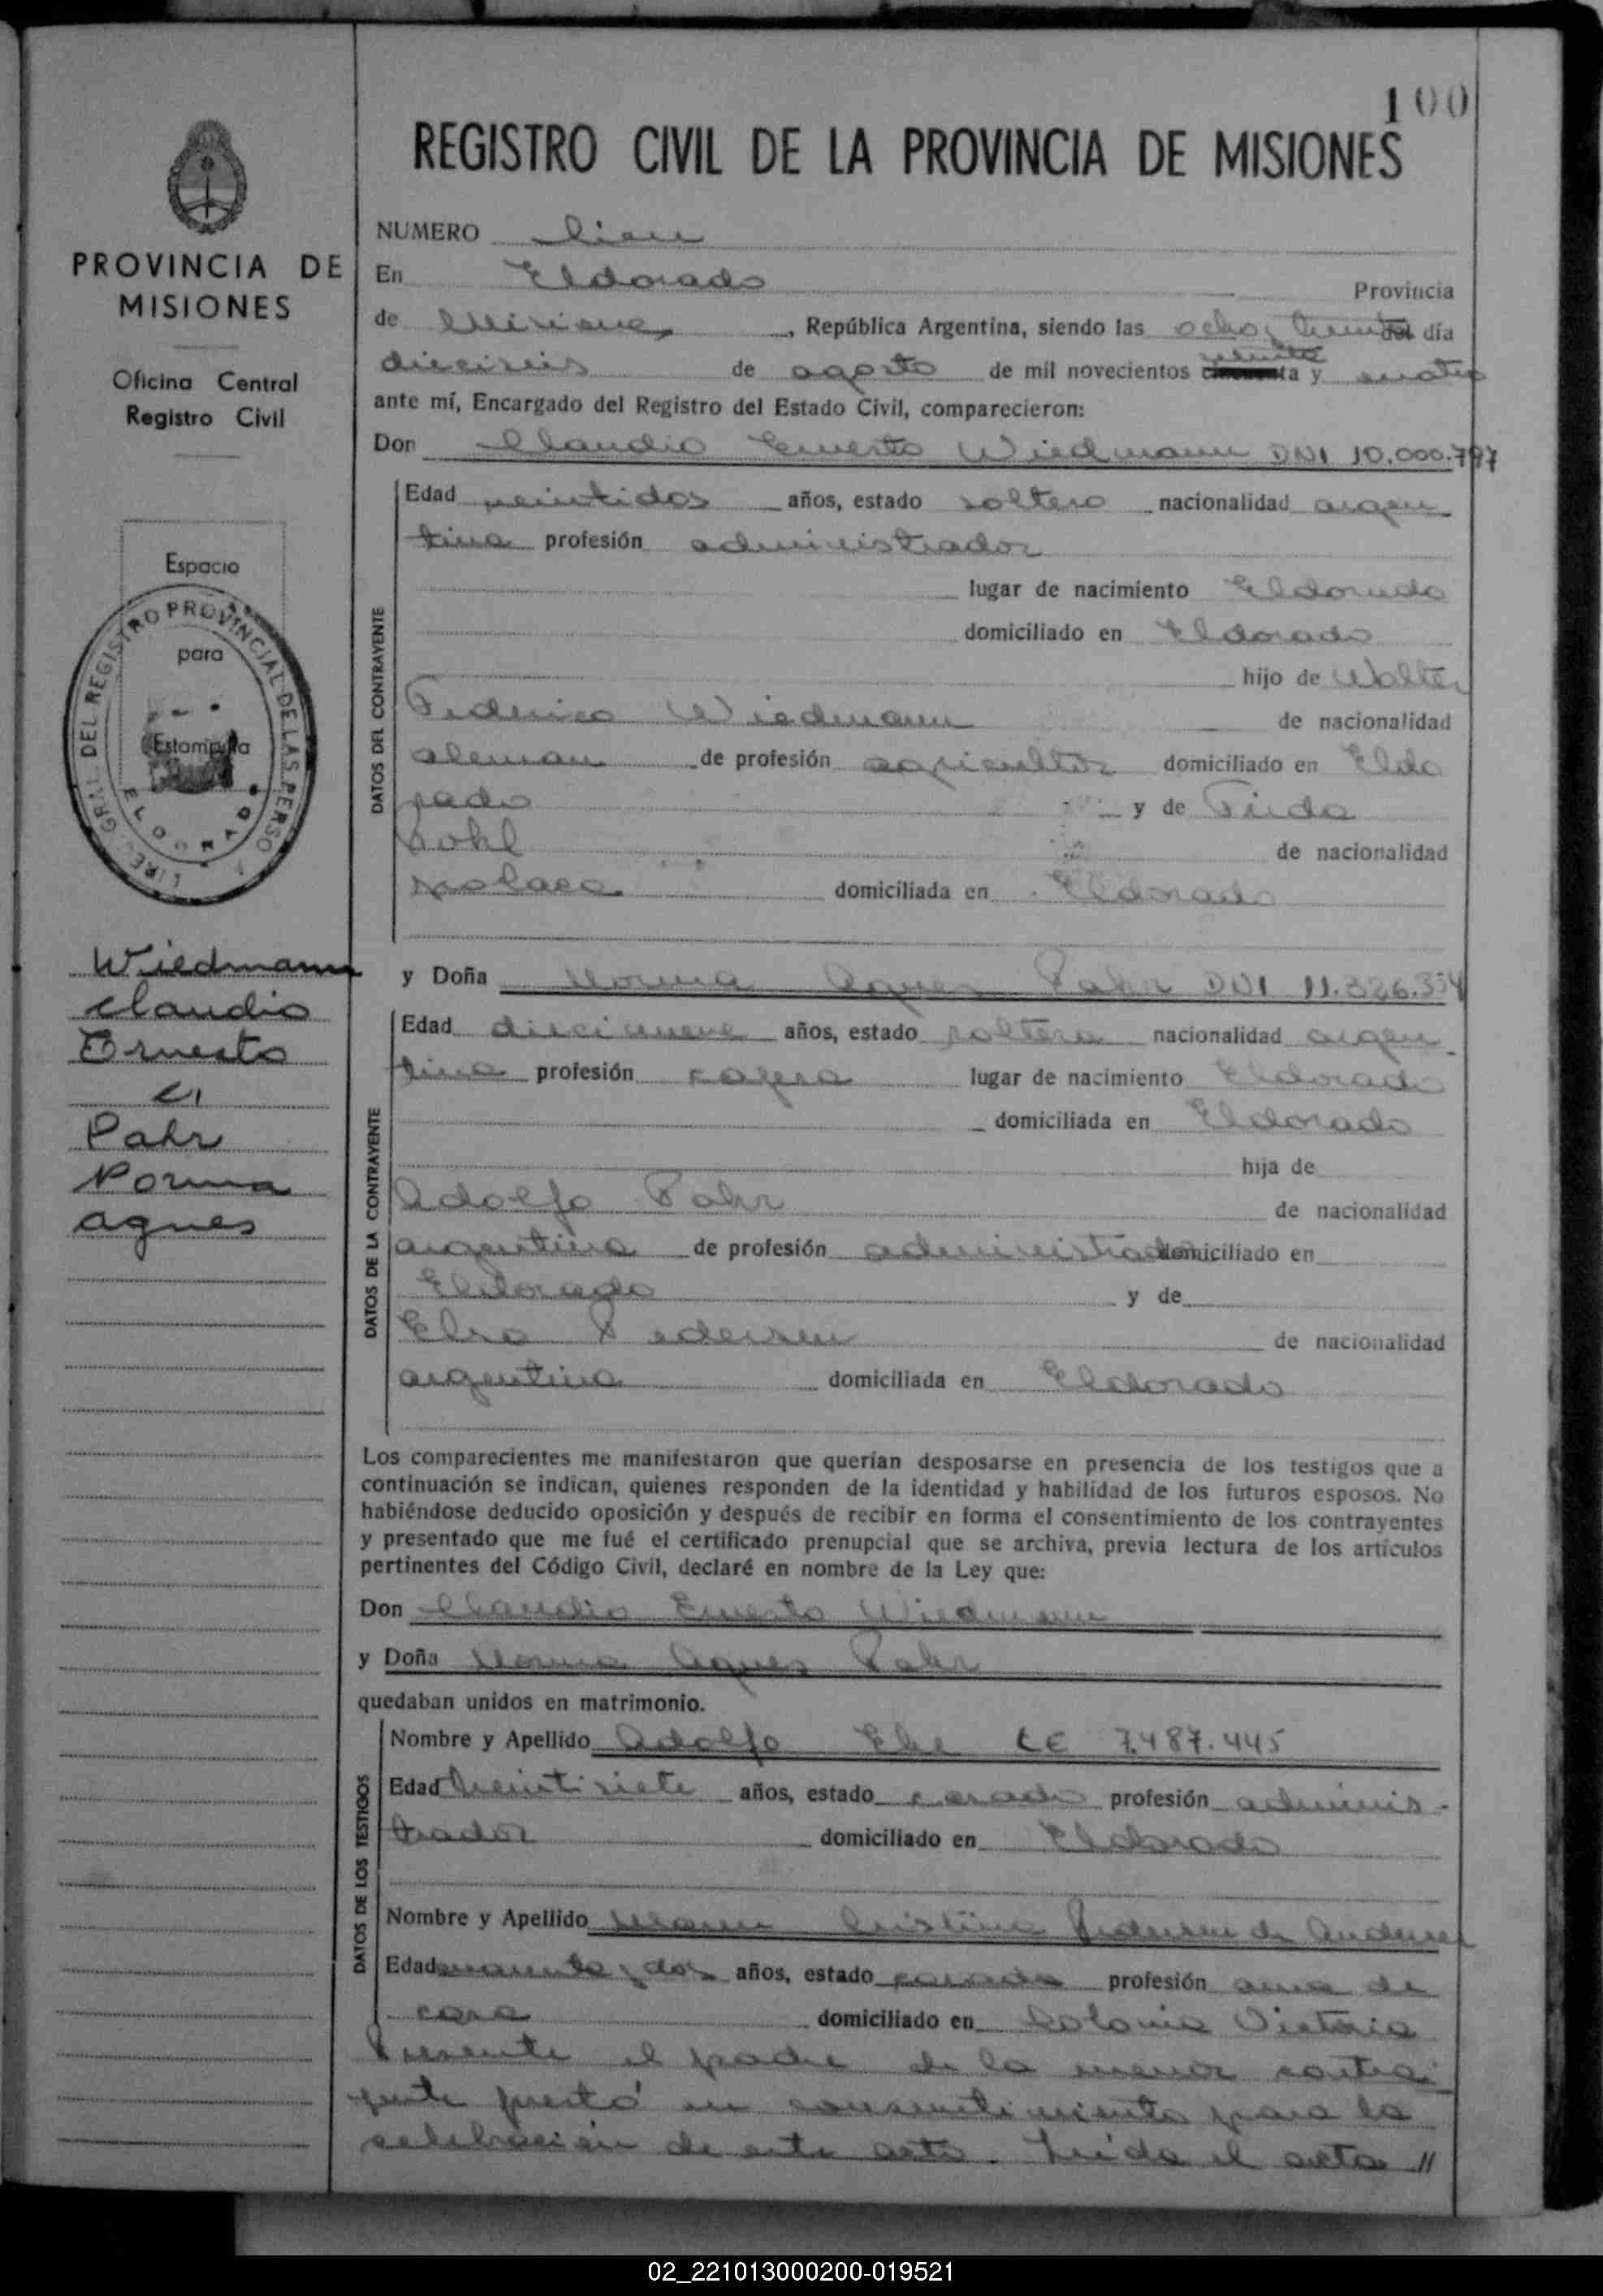 100
REGISTRO CIVIL DE LA PROVINCIA DE MISIONES
PROVINCIA DE
MISIONES
Oficina Central
Registro Civil
Espacio
para
Estampilla
DEL REGISTRO PROVINCIAL DE LAS PERSO
ELDORADO
Wiedmann
Claudio
Ernesto
c/
Pahr
Norma
Agnes
NUMERO Cien
En Eldorado Provincia
de Misiones, República Argentina, siendo las ocho y treinta del día
dieciseis de agosto de mil novecientos setenta y cuatro
ante mí, Encargado del Registro del Estado Civil, comparecieron:
Don Claudio Ernesto Wiedmann DNI 10.000.797
DATOS DEL CONTRAYENTE
Edad veintidos años, estado soltero nacionalidad argen
tina profesión administrador
lugar de nacimiento Eldorado
domiciliado en Eldorado
hijo de Walter
Federico Wiedmann de nacionalidad
aleman de profesión agricultor domiciliado en Eldo
rado y de Frida
Pohl de nacionalidad
polaca domiciliada en Eldorado
y Doña Norma Agnes Pahr DNI 11.326.354
DATOS DE LA CONTRAYENTE
Edad diecinueve años, estado soltera nacionalidad argen
tina profesión cajera lugar de nacimiento Eldorado
domiciliada en Eldorado
hija de
Adolfo Pahr de nacionalidad
argentina de profesión administrador domiciliado en
Eldorado y de
Elsa Pedersen de nacionalidad
argentina domiciliada en Eldorado
Los comparecientes me manifestaron que querían desposarse en presencia de los testigos que a
continuación se indican, quienes responden de la identidad y habilidad de los futuros esposos. No
habiéndose deducido oposición y después de recibir en forma el consentimiento de los contrayentes
y presentado que me fué el certificado prenupcial que se archiva, previa lectura de los artículos
pertinentes del Código Civil, declaré en nombre de la Ley que:
Don Claudio Ernesto Wiedmann
y Doña Norma Agnes Pahr
quedaban unidos en matrimonio.
DATOS DE LOS TESTIGOS
Nombre y Apellido Adolfo LE 7.487.445
Edad veintisiete años, estado casado profesión adminis-
trador domiciliado en Eldorado
Nombre y Apellido Cristina Pedersen de Andersen
Edad cuarenta y dos años, estado casada profesión ama de
casa domiciliado en Colonia Victoria
Presente el padre de la menor contra-
yente prestó su consentimiento para la
celebración de este acto. Leída el acta //
02_221013000200-019521